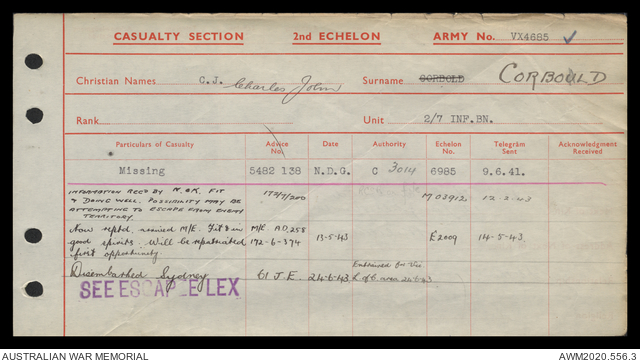 CASUALTY SECTION 2nd ECHELON ARMY No. VX4685
Christian Names C.J. Charles John Surname CORBOLD CORBOULD
Rank Unit 2/7 INF.BN.
Particulars of Casualty Advice No. Date Authority Echelon No. Telegram Sent Acknowledgment Received
Missing 5482 138 N.D.G. C 3014 6985 9.6.41.
INFORMATION REC'D BY N.O.K. FIT 172/7/200 M03912 12-2-43
& DOING WELL. POSSIBILITY MAY BE
ATTEMPTING TO ESCAPE FROM ENEMY
TERRITORY.
Now reptd. arrived M/E. Fit & in M/E AD.255
good spirits. Will be repatriated 172-6-374 13-5-43 E2009 14-5-43
first opportunity.
Disembarked Sydney 61 J.E. 24-6-43 Entrained for Vic.
L of C area 24-6-43
SEE ESCAPEE LEX
AUSTRALIAN WAR MEMORIAL AWM2020.556.3